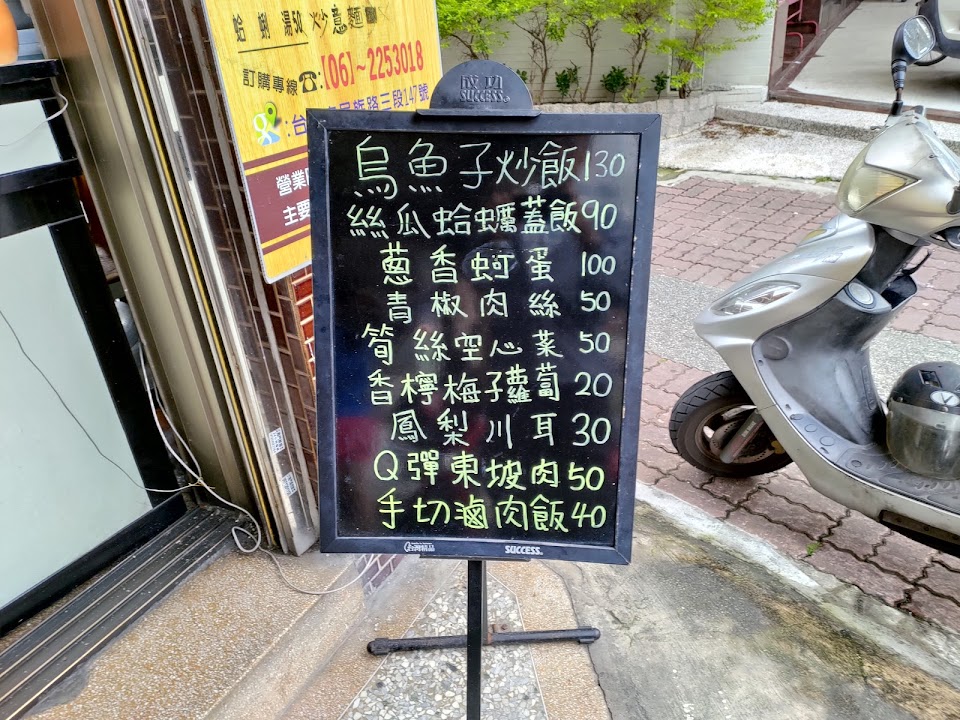 蛤蜊湯50 炒意麵
訂購專線☎:(06)~2253018
民族路三段147號
:台
營業
主要
成功
SUCCESS®
烏魚子炒飯130
絲瓜蛤蠣蓋飯90
蔥香蚵蛋 100
青椒肉絲 50
筍絲空心菜 50
香檸梅子蘿蔔 20
鳳梨川耳 30
Q彈東坡肉50
手切滷肉飯40
SUCCESS®